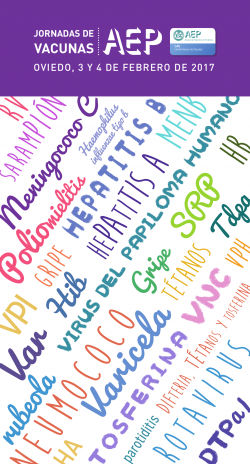 JORNADAS DE
VACUNAS
AEP
AEP
OVIEDO, 3 Y 4 DE FEBRERO DE 2017
RV
SARAMPIÓN
Meningococo C
Haemophilus
influenzae tipo b
HEPATITIS B
MENB
Poliomielitis
HEPATITIS A
VIRUS DEL PAPILOMA HUMANO
HR
VPI
GRIPE
Hib
Gripe
SRP
Tdpa
Var
TÉTANOS
VPH
rubeola
NEUMOCOCO
Varicela
VNC
HA
TOSFERINA
parotiditis
DIFTERIA, TÉTANOS Y TOSFERINA
ROTAVIRUS
DTPa